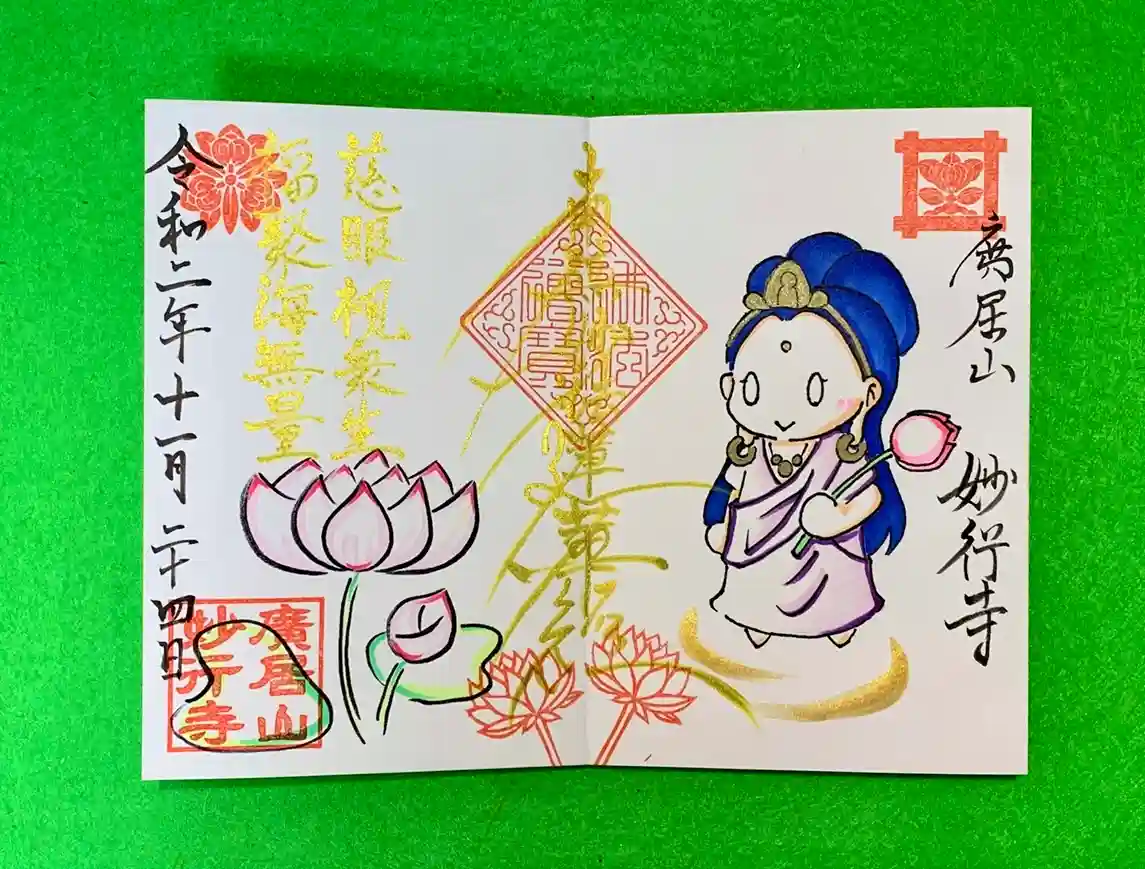 廣居山 妙行寺
南無妙法蓮華経
佛法
僧寶
慈眼視衆生
福聚海無量
令和二年十一月二十四日
廣居山
妙行寺